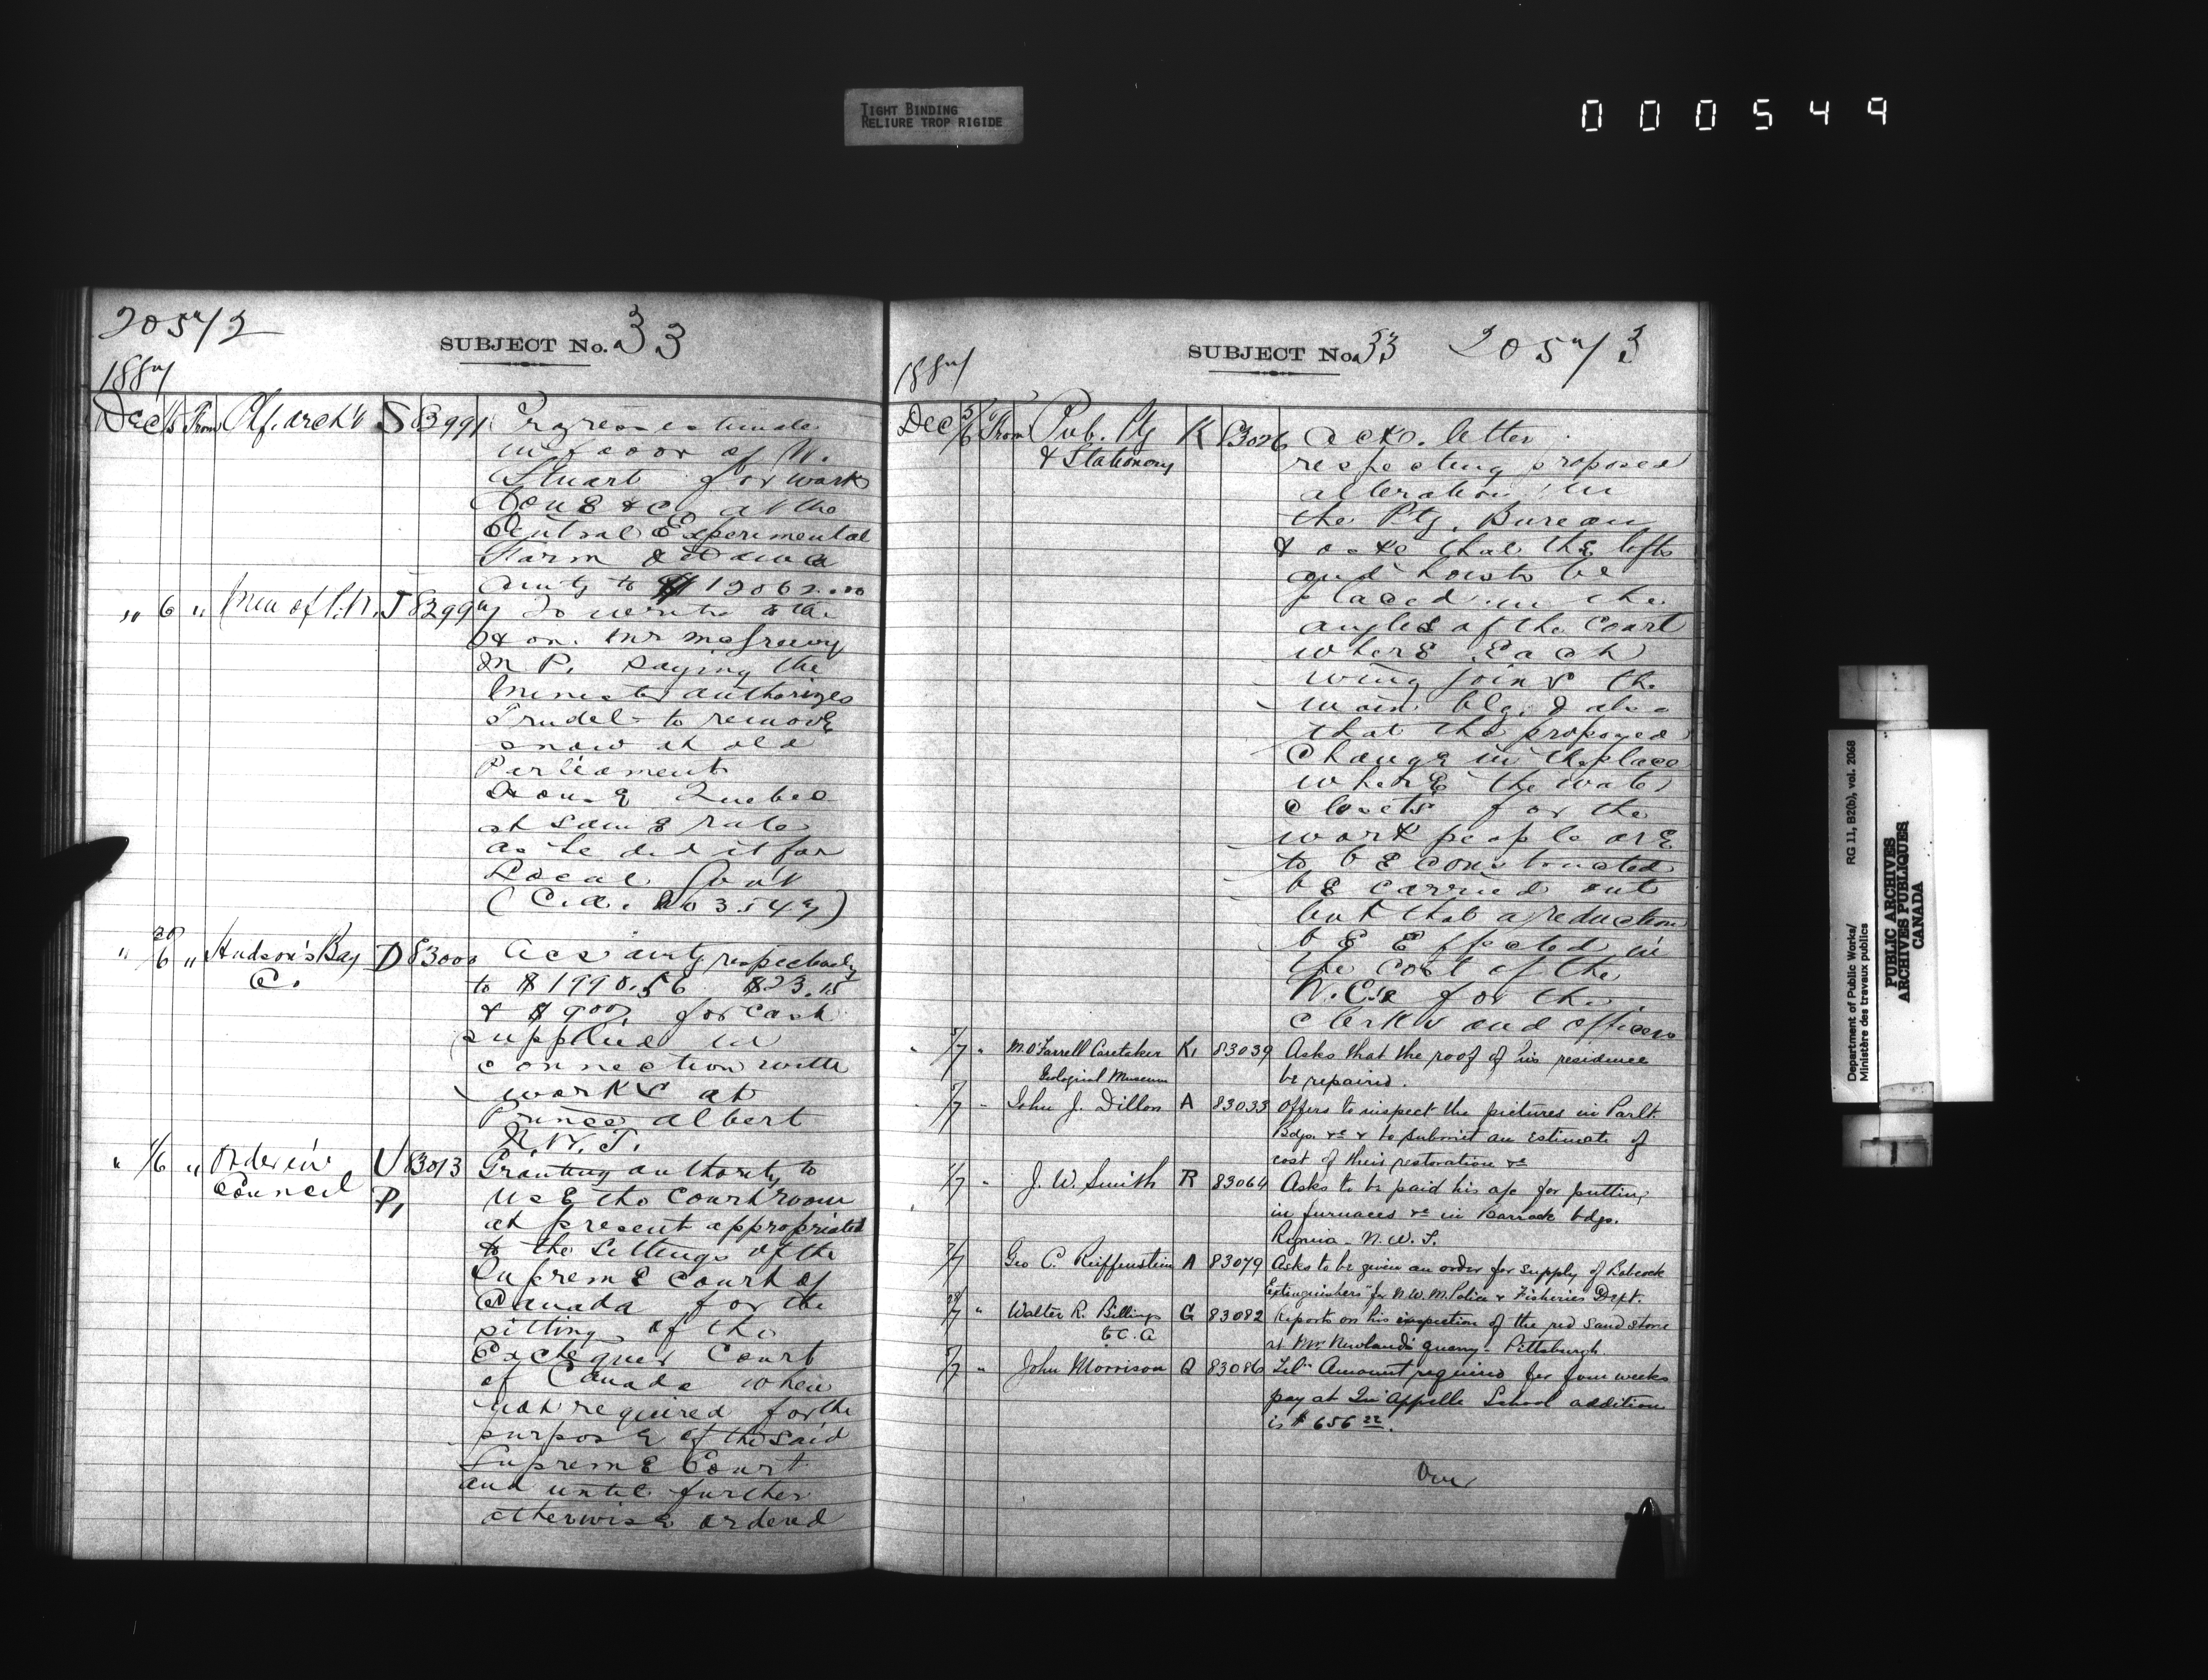 TIGHT BINDING
RELIURE TROP RIGIDE
000549
20572
SUBJECT No. 33
1887
Dec 6 From Chf. arch't S 82991 Progress estimate
in favor of W.
Stuart for work
done &c at the
Central Experimental
Farm Ottawa
amtg to $12062.00
" 6 " Men of P.N. J 82997 To write to the
Hon. Mr McGreevy
M P. saying the
Minister authorizes
Trudel to remove
snow at old
Parliament
House Quebec
at same rate
as he did it for
Local Govt
(C.a. No 3547)
" 29/6 " Hudson's Bay D 83000 Acs amtg respectively
Co. to $1990.56 $23.15
& $9.00 for cash
supplied in
connection with
works at
Prince Albert
N.W.T.
" 1/6 " Order in U 83013 Granting authority to
Council P, use the court room
at present appropriated
to the sittings of the
Supreme Court of
Canada for the
sitting of the
Exchequer Court
of Canada when
not required for the
purpose of the said
Supreme Court
and until further
otherwise ordered
SUBJECT No. 33 20573
1887
Dec 5/6 From Pub. Ptg K 83026 Ackn. letter
& Stationery respecting proposed
alteration in
the Ptg. Bureau
& asks that the lifts
and hoists be
placed in the
angles of the Court
where each
wing joins the
main blg. & also
that the proposed
change in the place
where the water
closets for the
work people are
to be constructed
be carried out
but that a reduction
be effected in
the cost of the
W.C's for the
clerks and officers
" 5/7 " M. O'Farrell Caretaker K, 83039 Asks that the roof of his residence
Geological Museum be repaired.
" 5/7 " John J. Dillon A 83033 Offers to inspect the pictures in Parlt.
Bdgs. &c & to submit an estimate of
cost of their restoration &c
7 " J. W. Smith R 83064 Asks to be paid his a/c for putting
in furnaces &c in Barrack bdgs.
Regina - N.W.T.
7/7 Geo C. Reiffenstein A 83079 Asks to be given an order for supply of Babcock
Extinguishers for N.W.M. Police & Fisheries Dept.
28/7 " Walter R. Billings G 83082 Reports on his inspection of the red sand stone
C. A at Mr. Newland's quarry - Pittsburgh
5/7 " John Morrison Q 83086 Teln Amount required for four weeks
pay at Qu'Appelle School addition
is $656 22.
Over
Department of Public Works/
Ministère des travaux publics
RG 11, B2(b), vol. 2068
PUBLIC ARCHIVES
ARCHIVES PUBLIQUES
CANADA